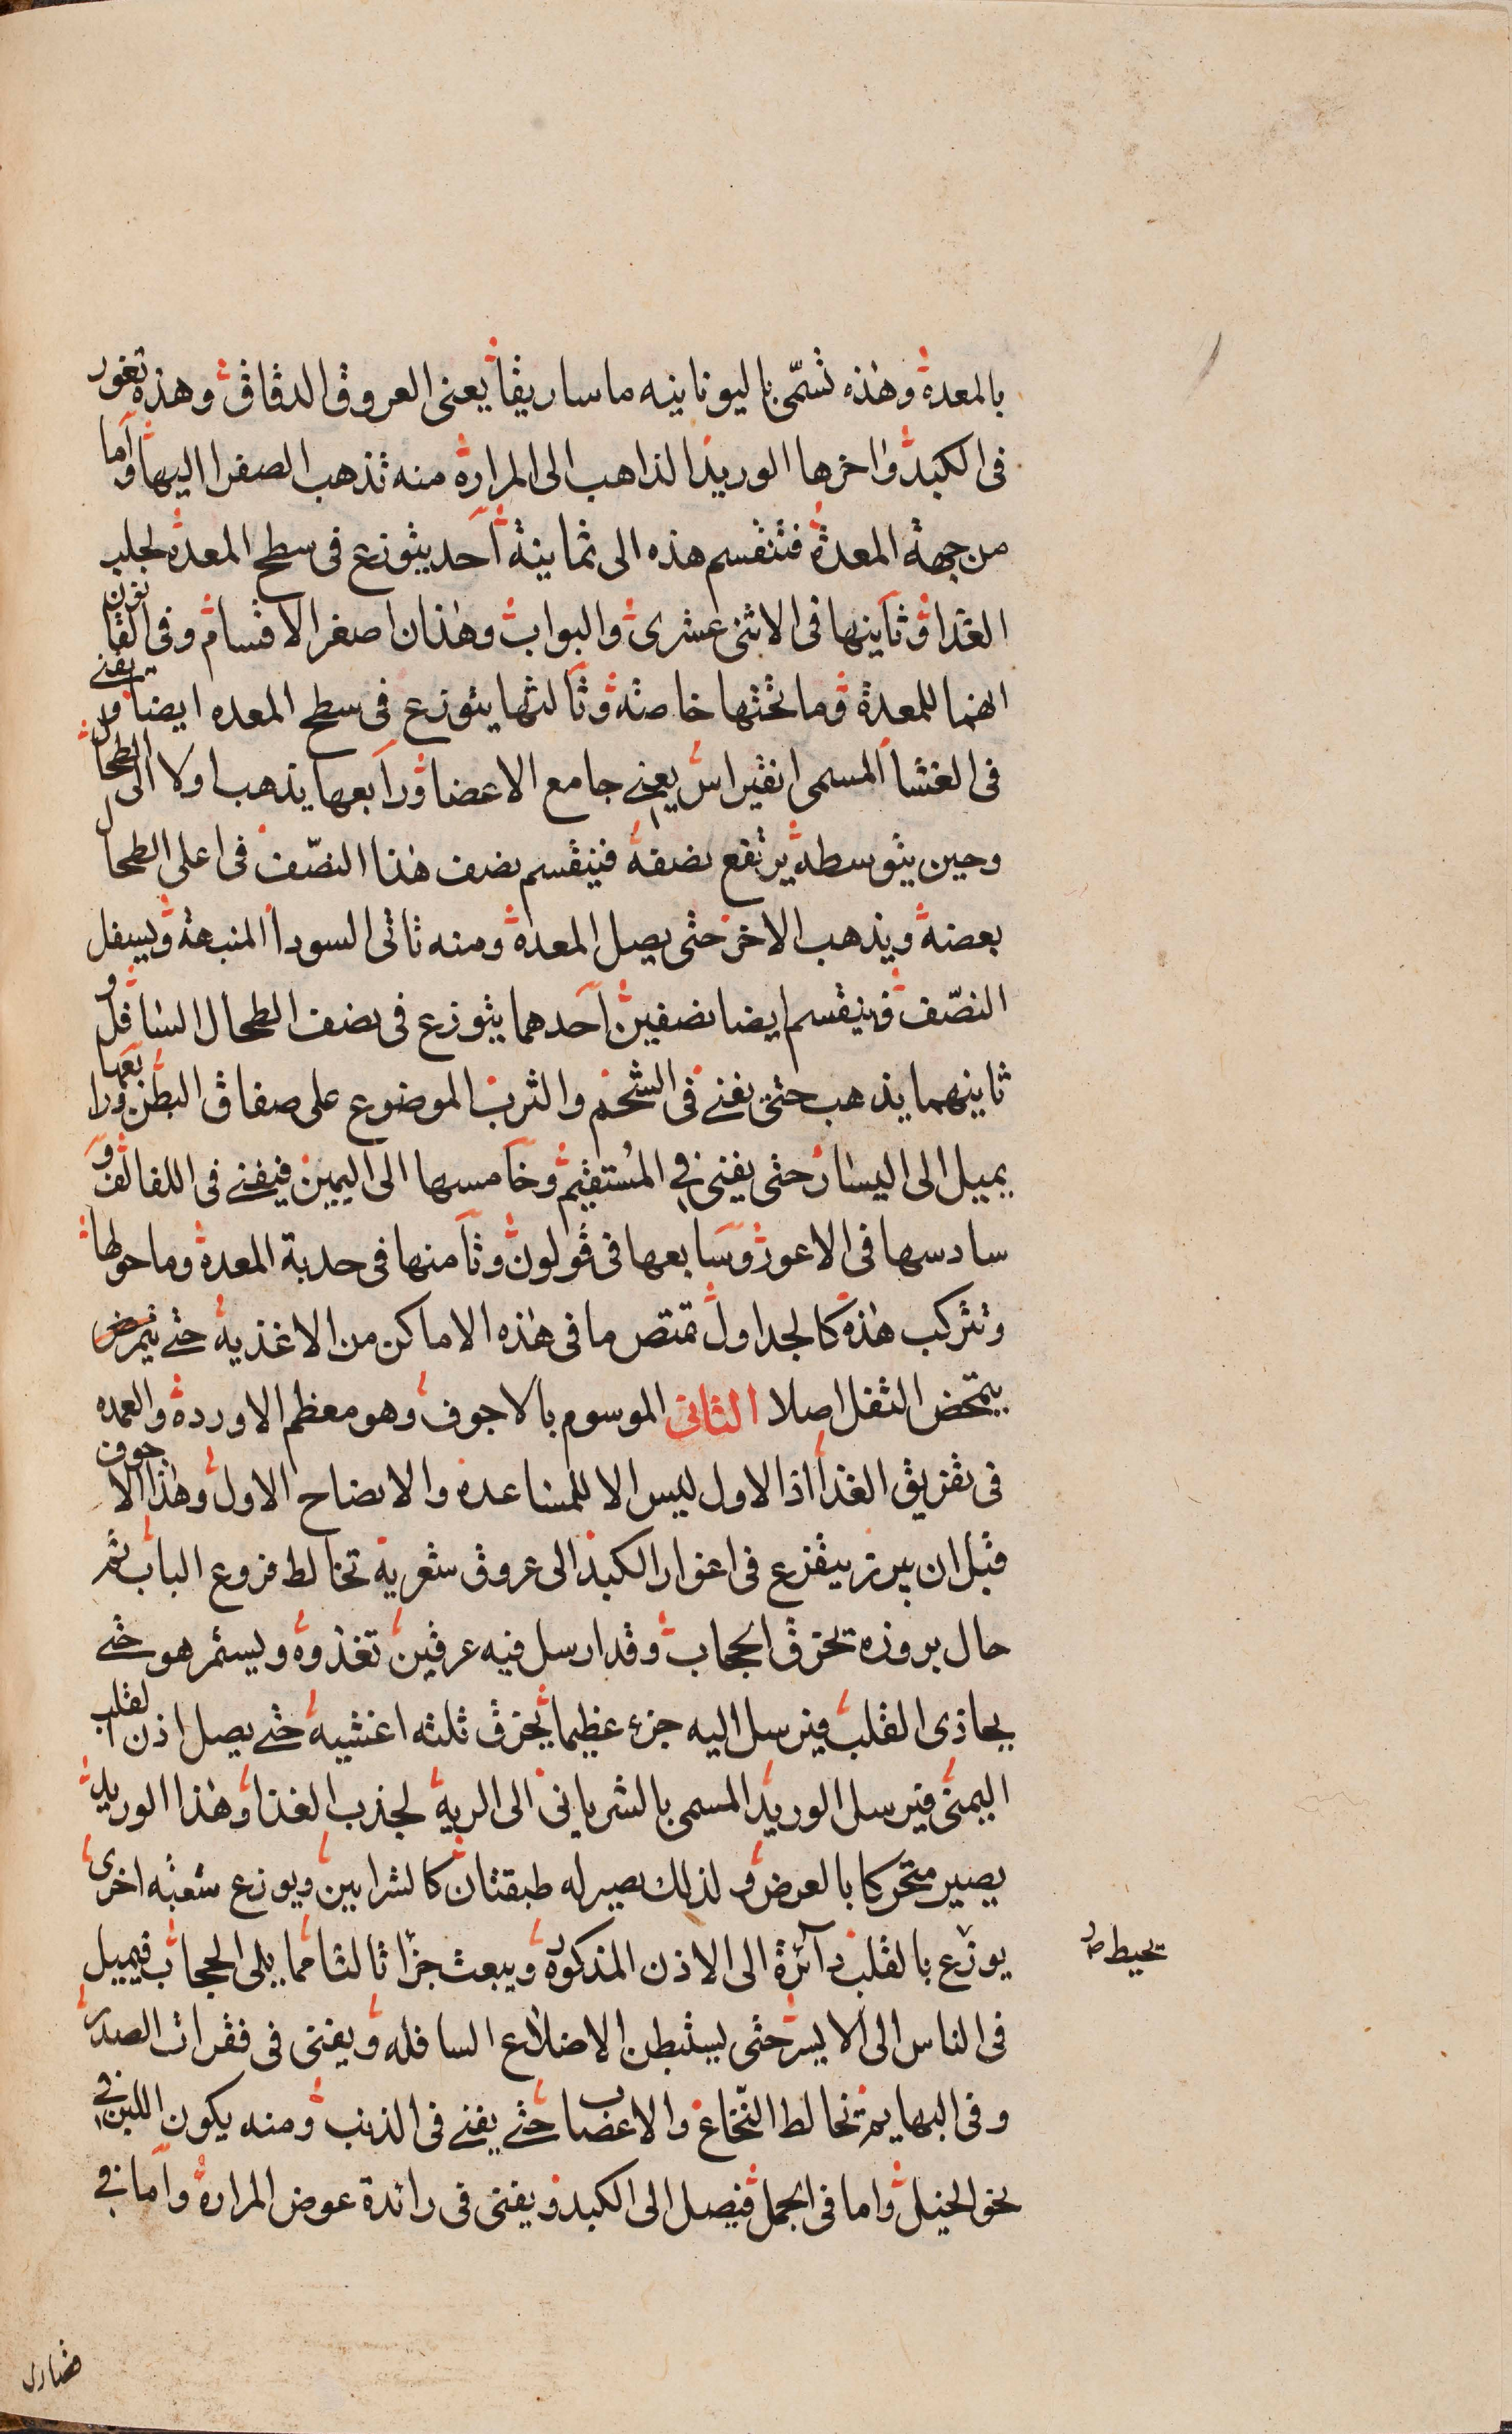 بالمعدة وهذه تسمّى باليونانيه ماساريقا يعنى العروق الدقاق وهذه تغور
فى الكبد واخرها الوريد الذاهب الى المرارة منه تذهب الصفرا اليها واما
من جهة المعدة فتنقسم هذه الى ثمانية احد يتوزع فى سطح المعدة لجلب
الغذا وثانيها فى الاثنى عشرى والبواب وهذان اصغر الاقسام وفى القانون
انهما للمعدة وما تحتها خاصته وثالثها يتوزع فى سطح المعده ايضا ويفنى
فى الغشا المسمى انقيراس يعنى جامع الاعضا ورابعها يذهب اولا الى الطحال
وحين يتوسطه يرتفع نصفه فينقسم نصف هذا النصّف فى اعلى الطحال
بعضه ويذهب الاخر حتى يصل المعدة ومنه تاتى السودا المنبهة ويسفل
النصّف فينقسم ايضا نصفين احدهما يتوزع فى نصف الطحال السافل و
ثانيهما يذهب حتى يفنى فى الشحم والثرب الموضوع على صفاق البطن ورابعها
يميل الى اليسار حتى يفنى فى المستقيم وخامسها الى اليمين فيفنى فى اللفائف و
سادسها فى الاعور وسابعها فى قولون وثامنها فى حدبة المعدة وما حولها
وتتركب هذه كالجداول تمتص ما فى هذه الاماكن من الاغذيه حتى يتمرض
يتمحض الثفل اصلا الثانى الموسوم بالاجوف وهو معظم الاوردة والعمده
فى تفريق الغذا اذ الاول ليس الا للمساعدة والانضاح الاول وهذا الاجوف
قبل ان يبرز يتفرع فى اغوار الكبد الى عروق شعرية تخالط فروع الباب ثم
حال بروزه تخرق الحجاب وقد ارسل فيه عرقين تغذوه ويستمر هو حتى
يحاذى القلب فيرسل اليه جزء عظيما يخرق ثلثه اغشيه حتى يصل اذن القلب
اليمنى فيرسل الوريد المسمى بالشريانى الى الرية لجذب الغذا وهذا الوريد
يصير متحركا بالعرض ولذلك يصير له طبقتان كالشرايين ويوزع شعبه اخرى
يوزع بالقلب دآئرة الى الاذن المذكورة ويبعث جزا ثالثا مما يلى الحجاب فيميل
تحيط صر
فى الناس الى الايسر حتى يستبطن الاضلاع السافله ويفنى فى فقرات الصدر
وفى البهايم تخالط النّخاع والاعصاب حتى يفنى فى الذنب ومنه يكون اللبن فى
نحو الخيل واما فى الجمل فيصل الى الكبد ويفنى فى رائدة عوض المرارة واما فى